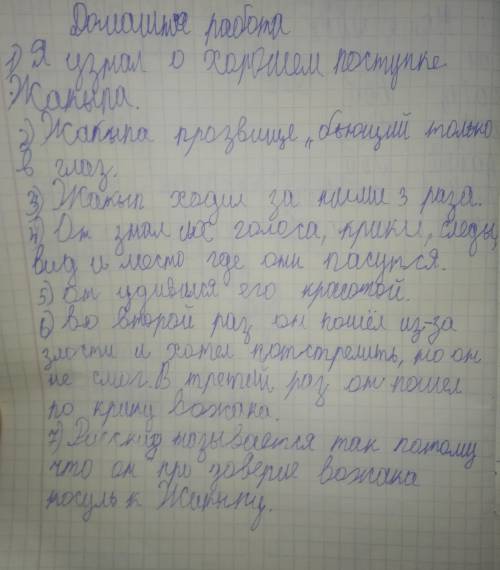 Домашняя работа
1) Я узнал о хорошем поступке
Жакыпа.
2) Жакыпа прозвище „бьющий только
в глаз.
3) Жакып ходил за ними 3 раза.
4) Он знал их голоса, крики, следы,
вид и место где они пасутся.
5) Он удивился его красотой.
6) Во второй раз он пошёл из-за
злости и хотел потстрелить, но он
не смог. В третий раз он пошел
по крику вожака.
7) Рассказ называется так потому
что он про доверие вожака
косуль к Жакыпу.